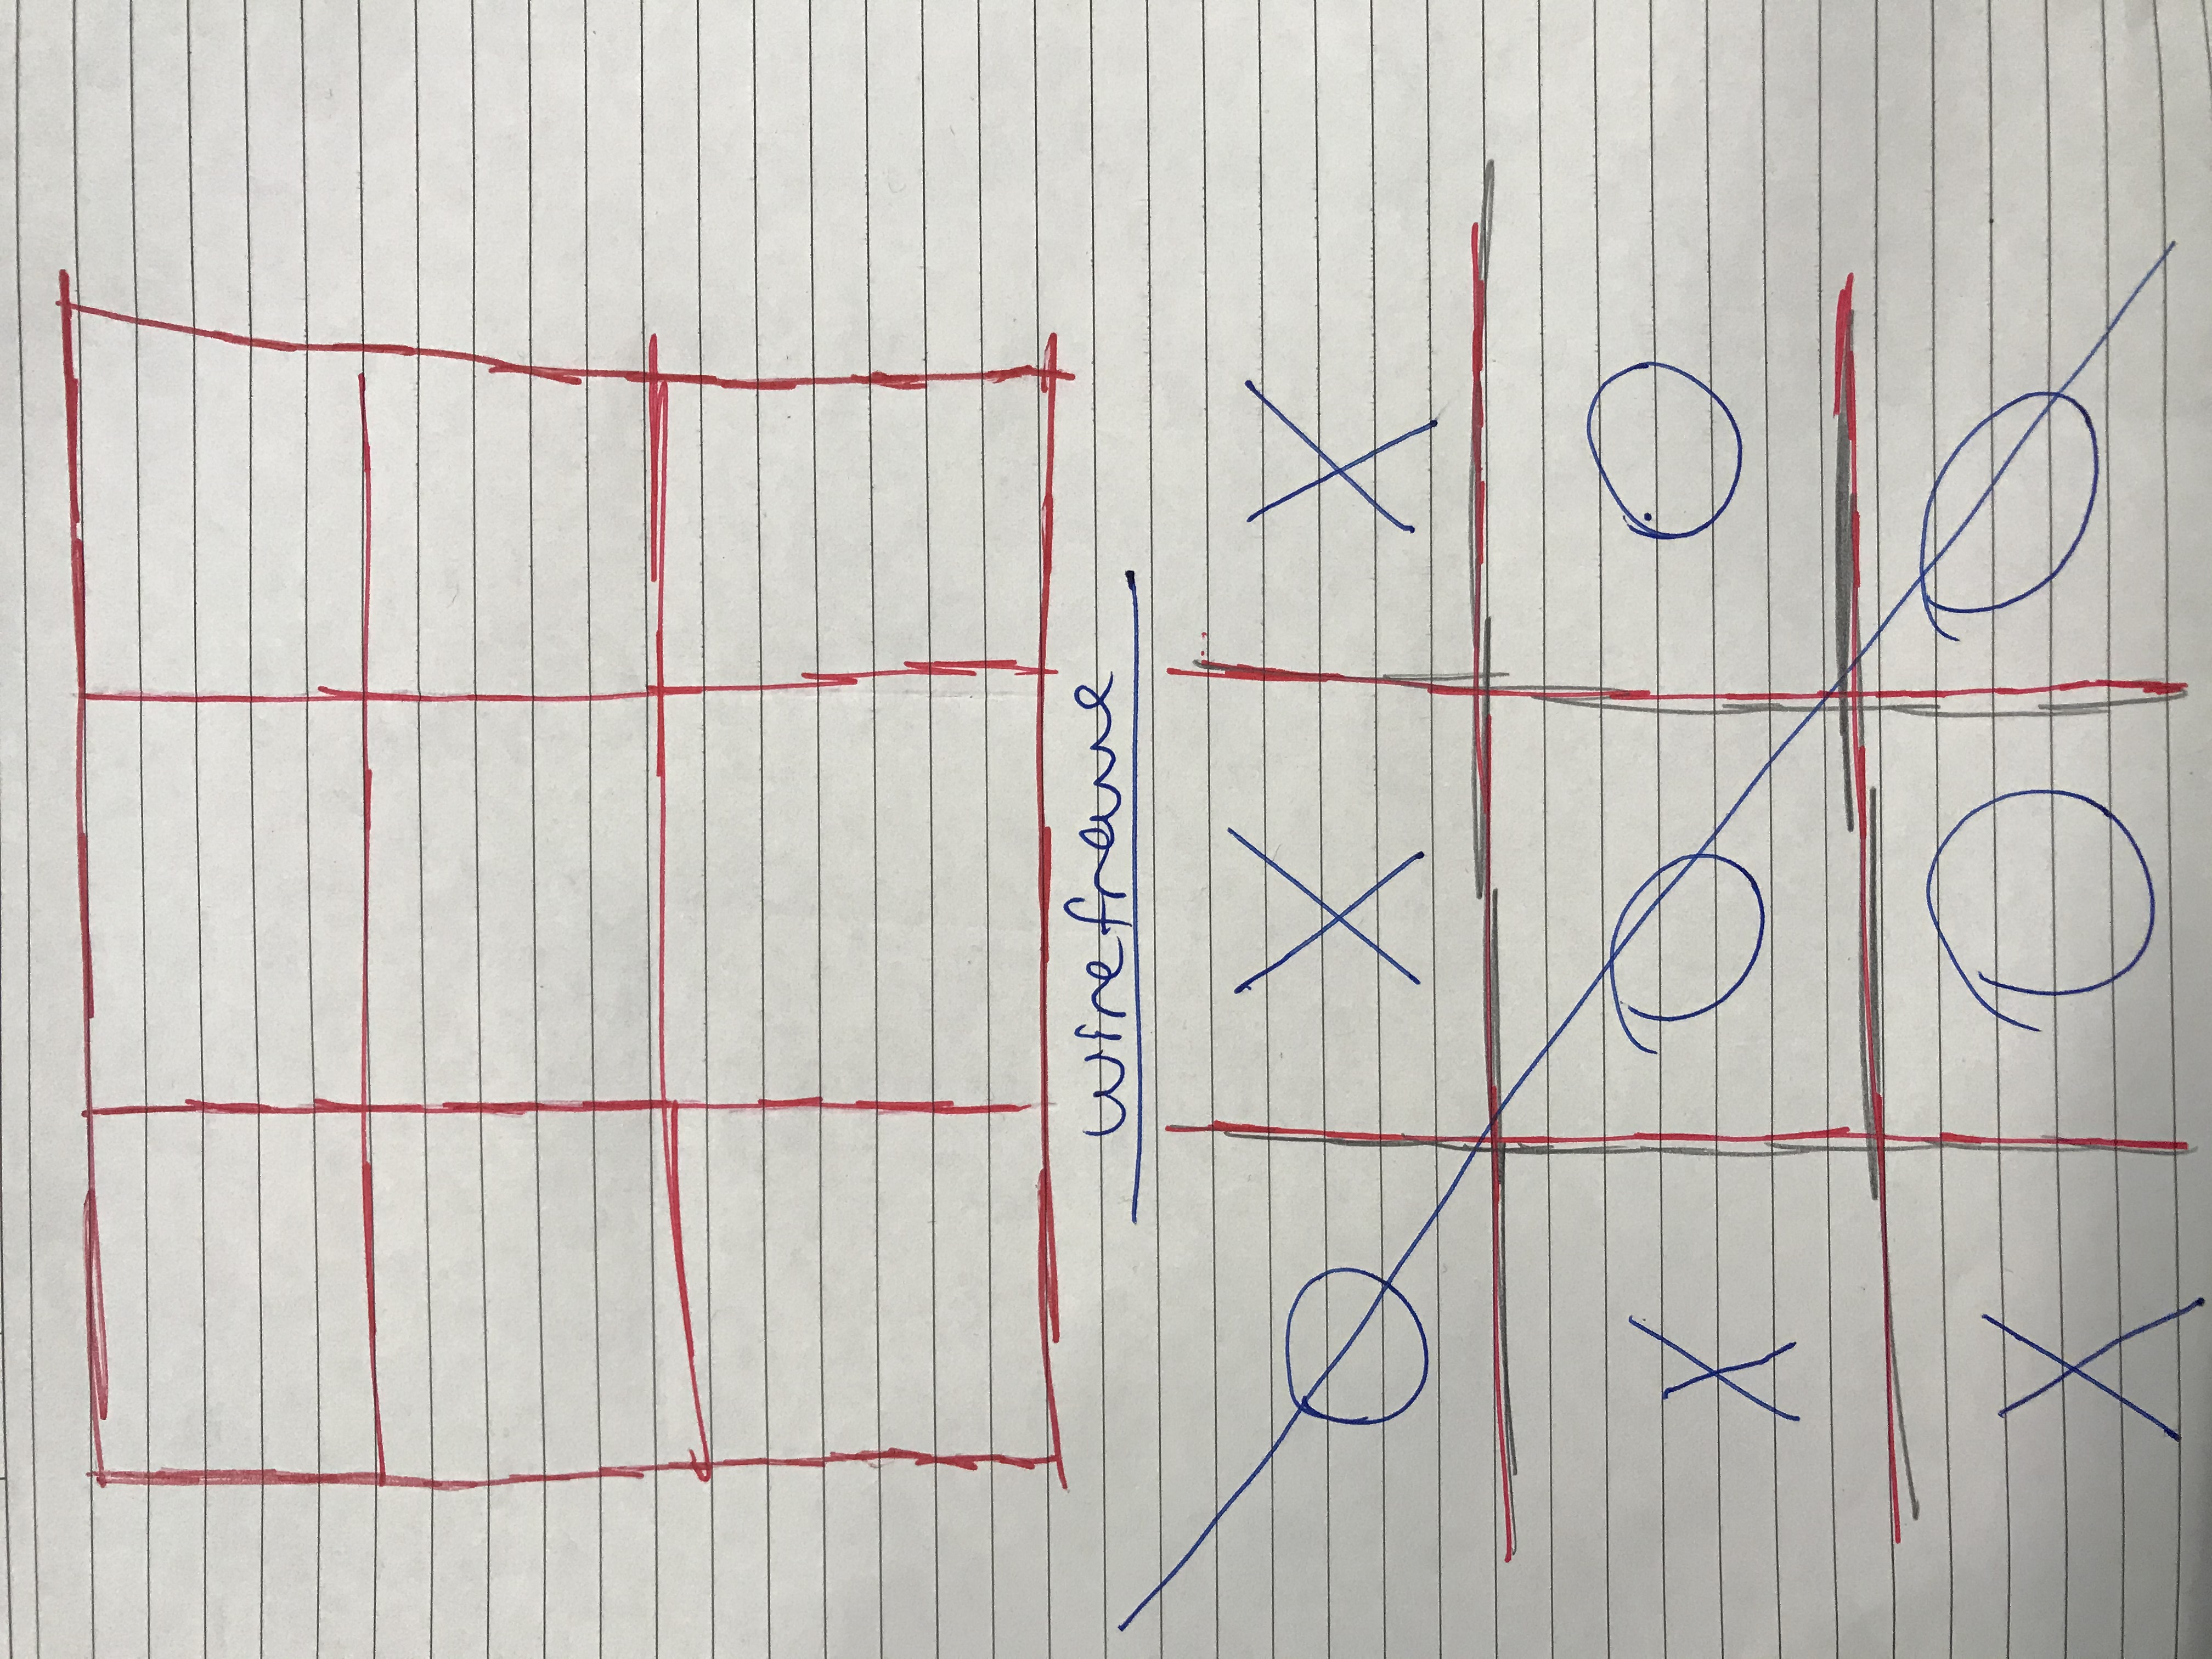 wireframe
O X X
X O O
X O O